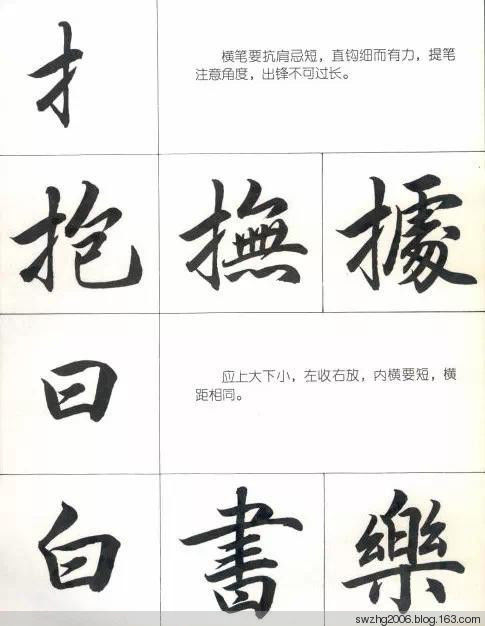 扌
横笔要抗肩忌短，直钩细而有力，提笔
注意角度，出锋不可过长。
抱 撫 據
曰
应上大下小，左收右放，内横要短，横
距相同。
白 書 樂
swzhg2006.blog.163.com